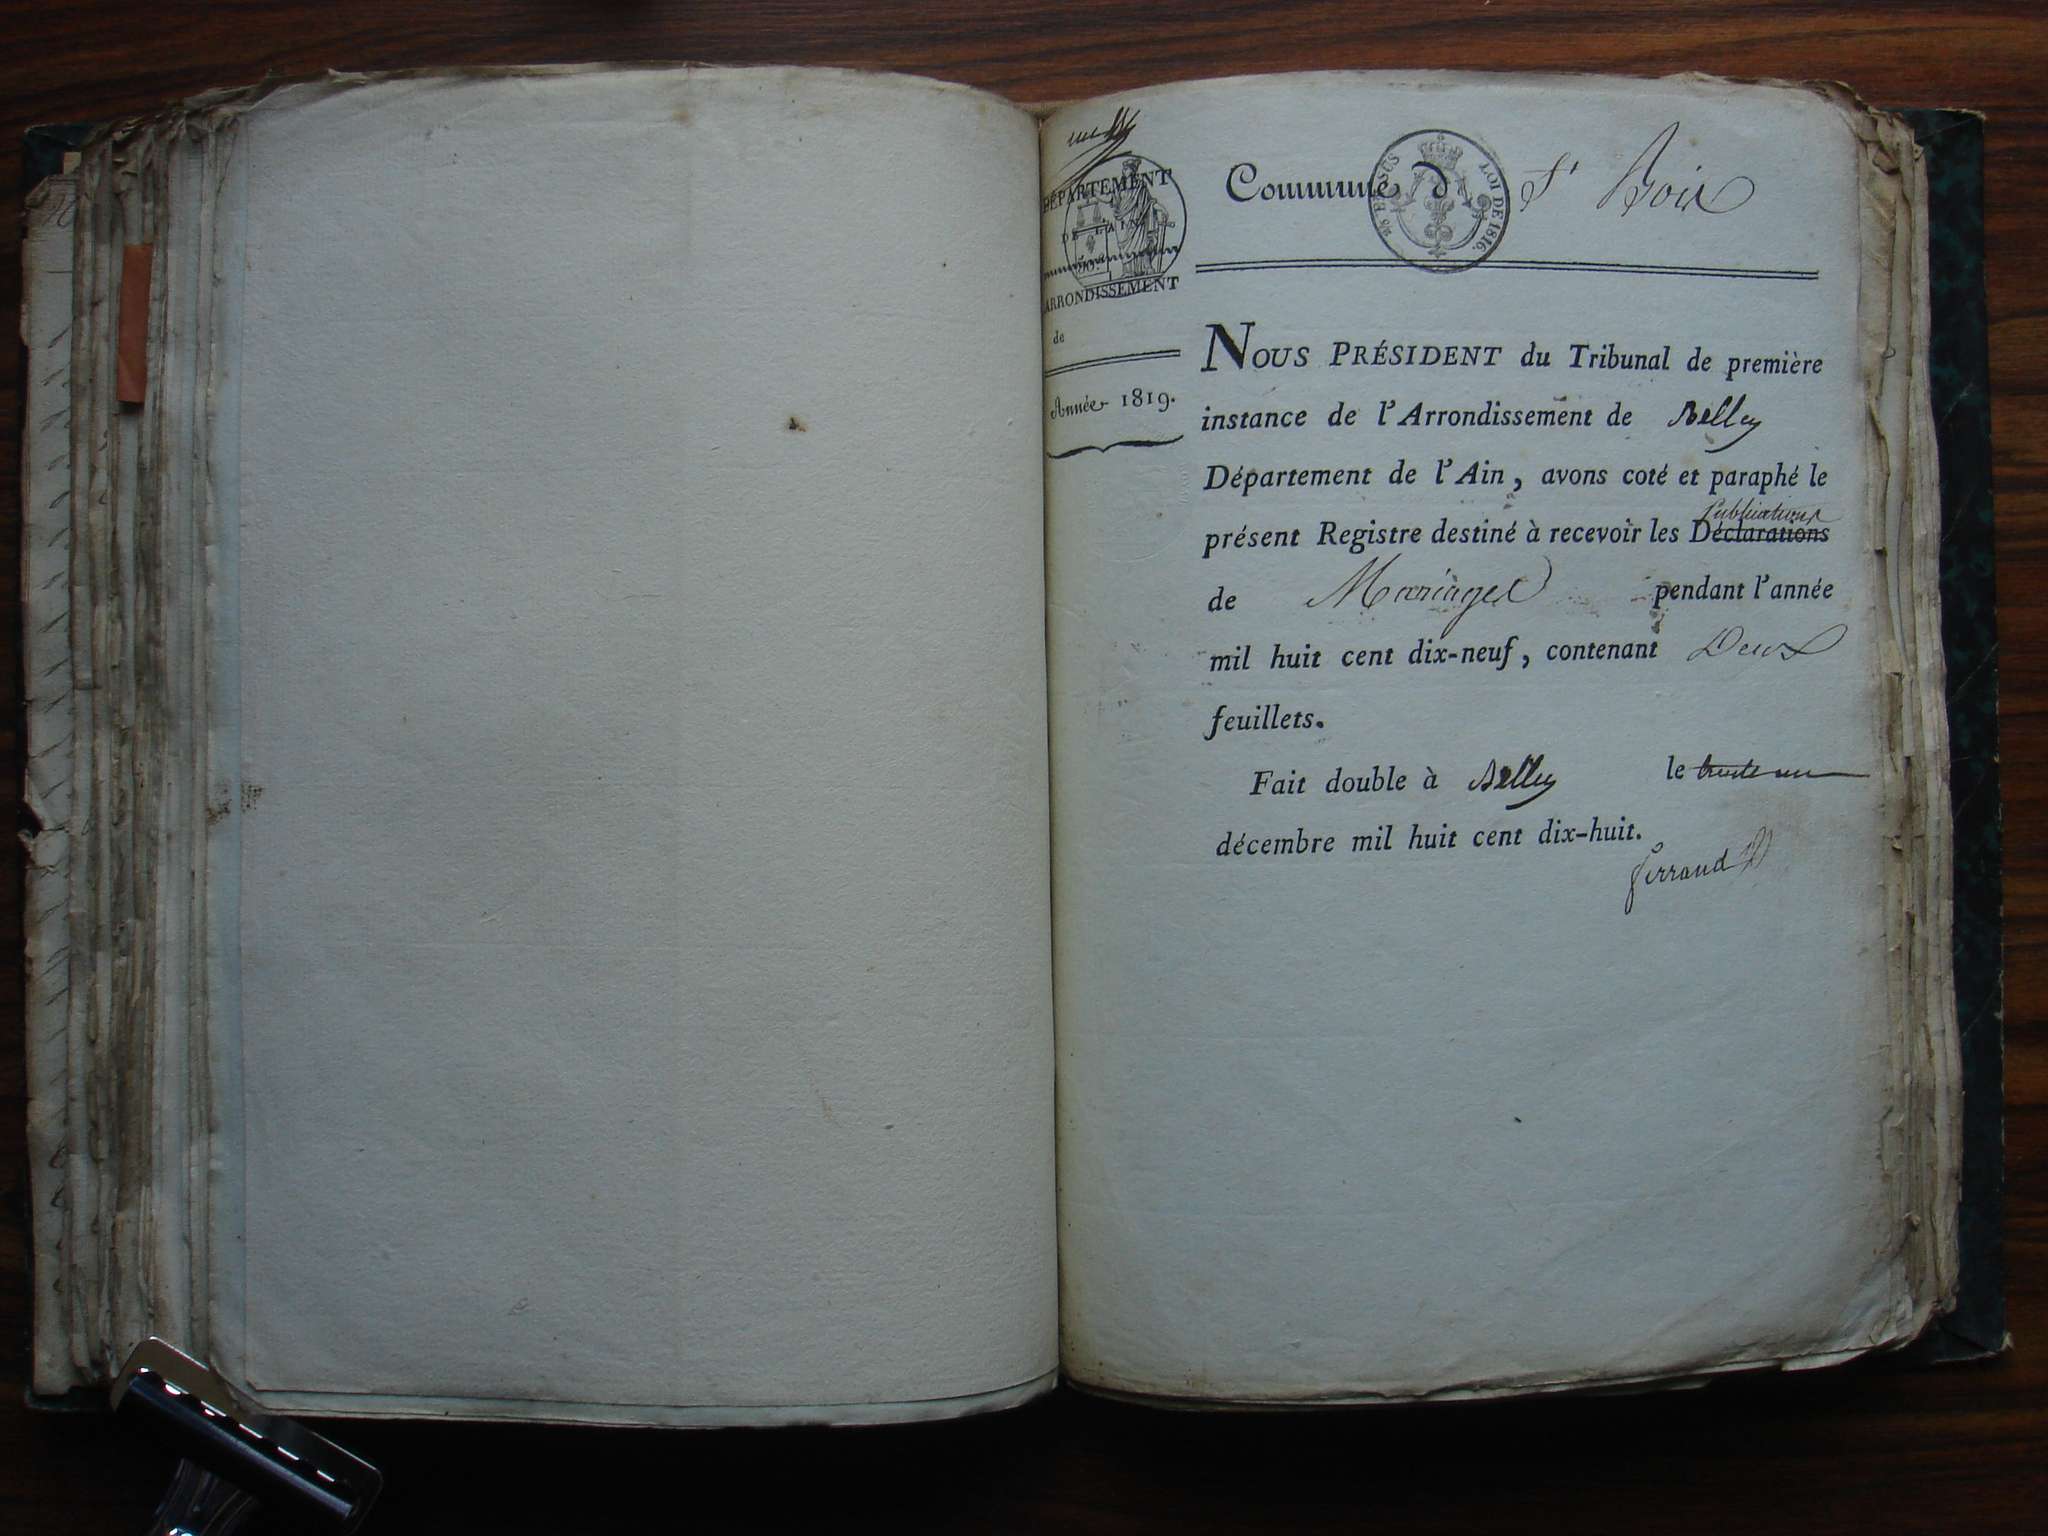 DÉPARTEMENT
DE L'AIN.
ARRONDISSEMENT
de
Année 1819.
Commune d St Boix
EN SUS
LOI DE 1816.
NOUS PRÉSIDENT du Tribunal de première
instance de l'Arrondissement de Belley
Département de l'Ain, avons coté et paraphé le
Publications
présent Registre destiné à recevoir les Déclarations
de Mariages pendant l'année
mil huit cent dix-neuf, contenant Deux
feuillets.
Fait double à Belley le trente un
décembre mil huit cent dix-huit.
ferrand